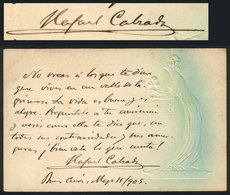 Rafael Calzada
No creas á los que te digan
que vives en un valle de la-
grimas. La vida es buena y es
alegre. Pregúntale á tu
y veras como ella te dice que, con
todas sus contrariedades y sus
guras, ¡ bien vale la que cuesta!
Rafael Calzada
Buen. Aires, Mayo 11/905.